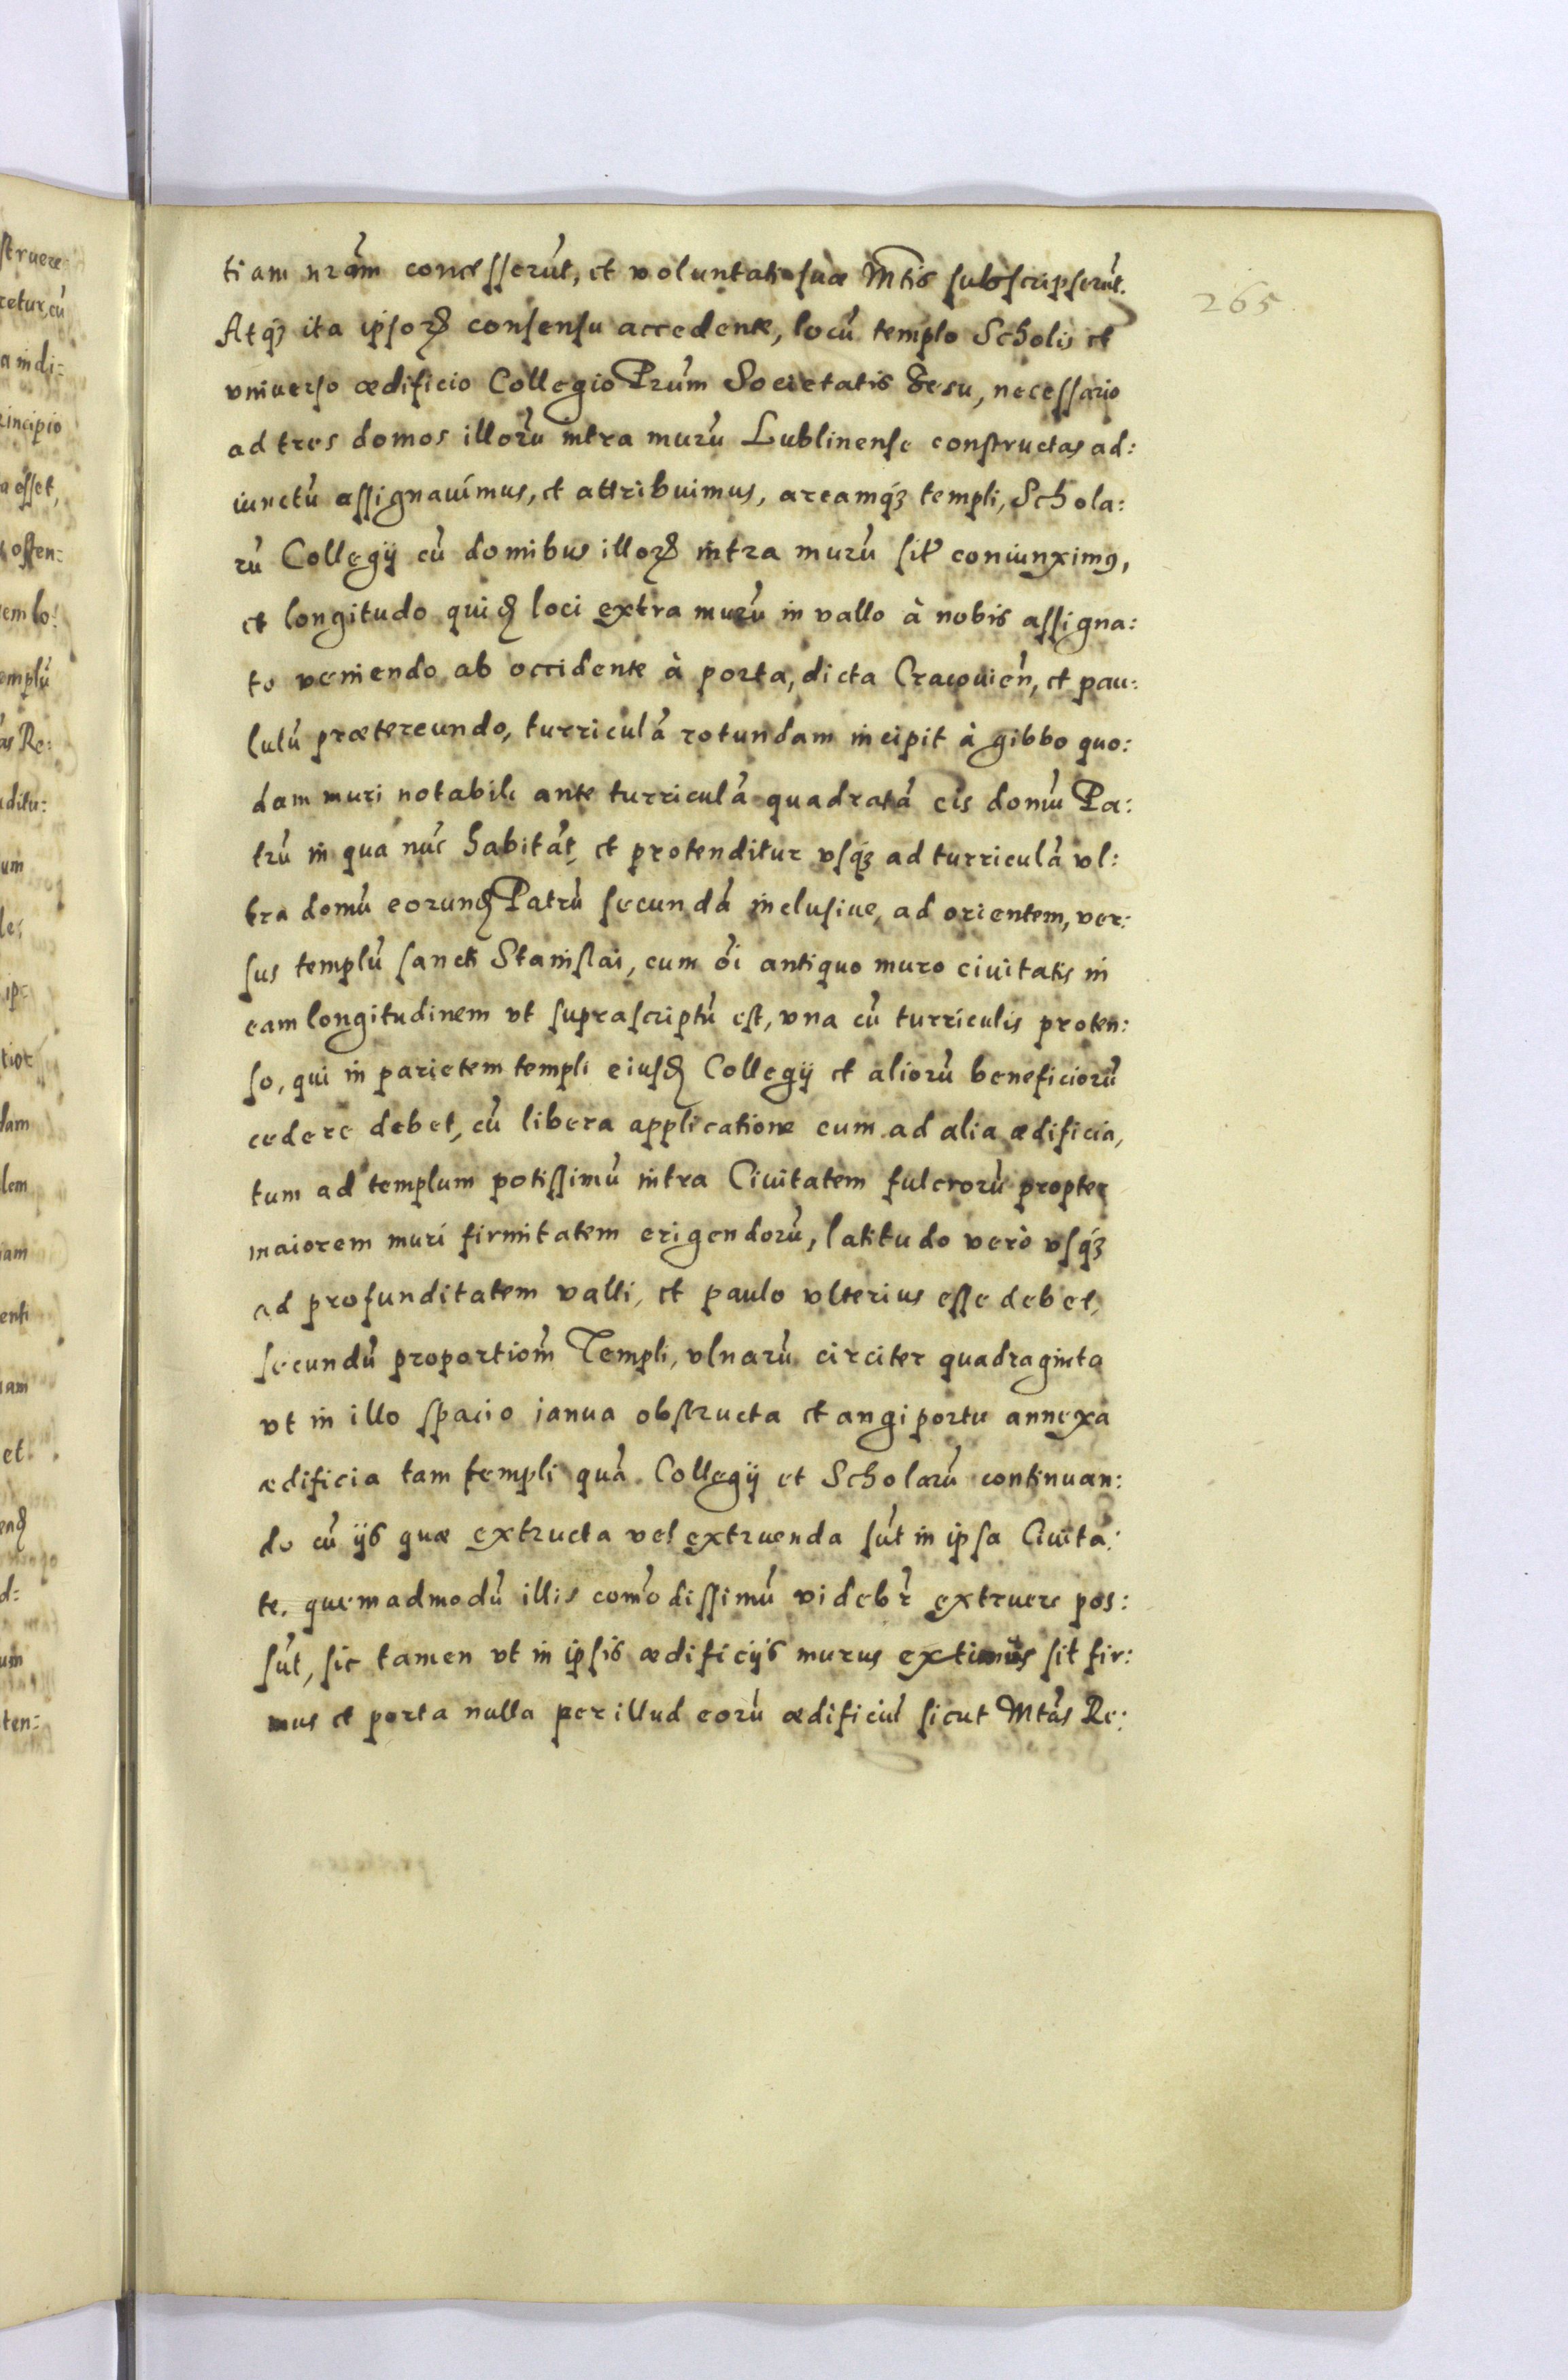 265
tiam nrãm concesserũt, et voluntati suæ Mtis subscripserũt.
Atq́ʒ ita ipsorꝝ consensu accedente, locũ templo Scholis et
vniuerso ædificio Collegio Prũm Societatis Iesu, necessario
ad tres domos illorũ intra murũ Lublinense constructas ad:
iunctũ assignauimus, et attribuimus, areamq́ʒ templi, Schola:
rũ Collegij cũ domibus illorꝝ intra murũ silr coniunximꝰ,
et longitudo quidẽ loci extra murũ in vallo à nobis assigna:
to veniendo ab occidente à porta, dicta Cracouieñ, et pau:
lulũ prætereundo, turriculã rotundam incipit à gibbo quo:
dam muri notabili ante turriculã quadratã cis domũ Pa:
trũ in qua nũc habitãt, et protenditur vsq́ʒ ad turriculã vl:
tra domũ eorundẽ Patrũ secundã inclusiue, ad orientem, ver:
sus templũ sancti Stanislai, cum õi antiquo muro ciuitatis in
eam longitudinem vt suprascriptũ est, vna cũ turriculis proten:
so, qui in parietem templi eiusdẽ Collegij et aliorũ beneficiorũ
cedere debet, cũ libera applicatione cum ad alia ædificia,
tum ad templum potissimũ intra Ciuitatem fulcrorũ propter
maiorem muri firmitatem erigendorũ, latitudo verò vsq́ʒ
ad profunditatem valli, et paulo vlterius esse debet,
secundũ proportiom̃ Templi, vlnarũ circiter quadraginta
vt in illo spacio ianua obstructa et angiportu annexa
ædificia tam templi quã Collegij et Scholarũ continuan:
do cũ ijs quæ extructa vel extruenda sũt in ipsa Ciuita:
te. quemadmodũ illis com̃odissimũ videbr̃ extruere pos:
sũt, sic tamen vt in ipsis ædificijs murus extimus sit fir:
mus et porta nulla per illud eorũ ædificiũ sicut Mtãs Re: